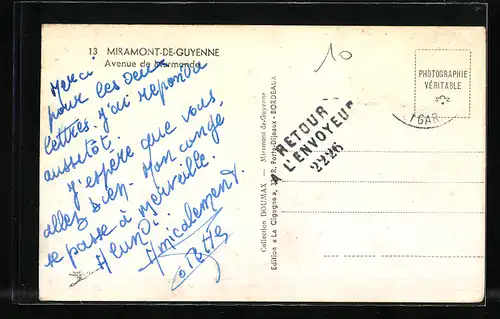 13 MIRAMONT-DE-GUYENNE
Avenue de Marmande
Merci
pour les deux
lettres. j'ai repondu
aussitôt.
J'espère que vous
allez bien. Mon congé
se passe à merveille.
A lundi.
Amicalement
10
PHOTOGRAPHIE
VÉRITABLE
GAR
RETOUR
A L'ENVOYEUR
2226
Collection DOUMAX — Miramont-de-Guyenne
Edition « La Cigogne », Porte-Dijeaux - BORDEAUX